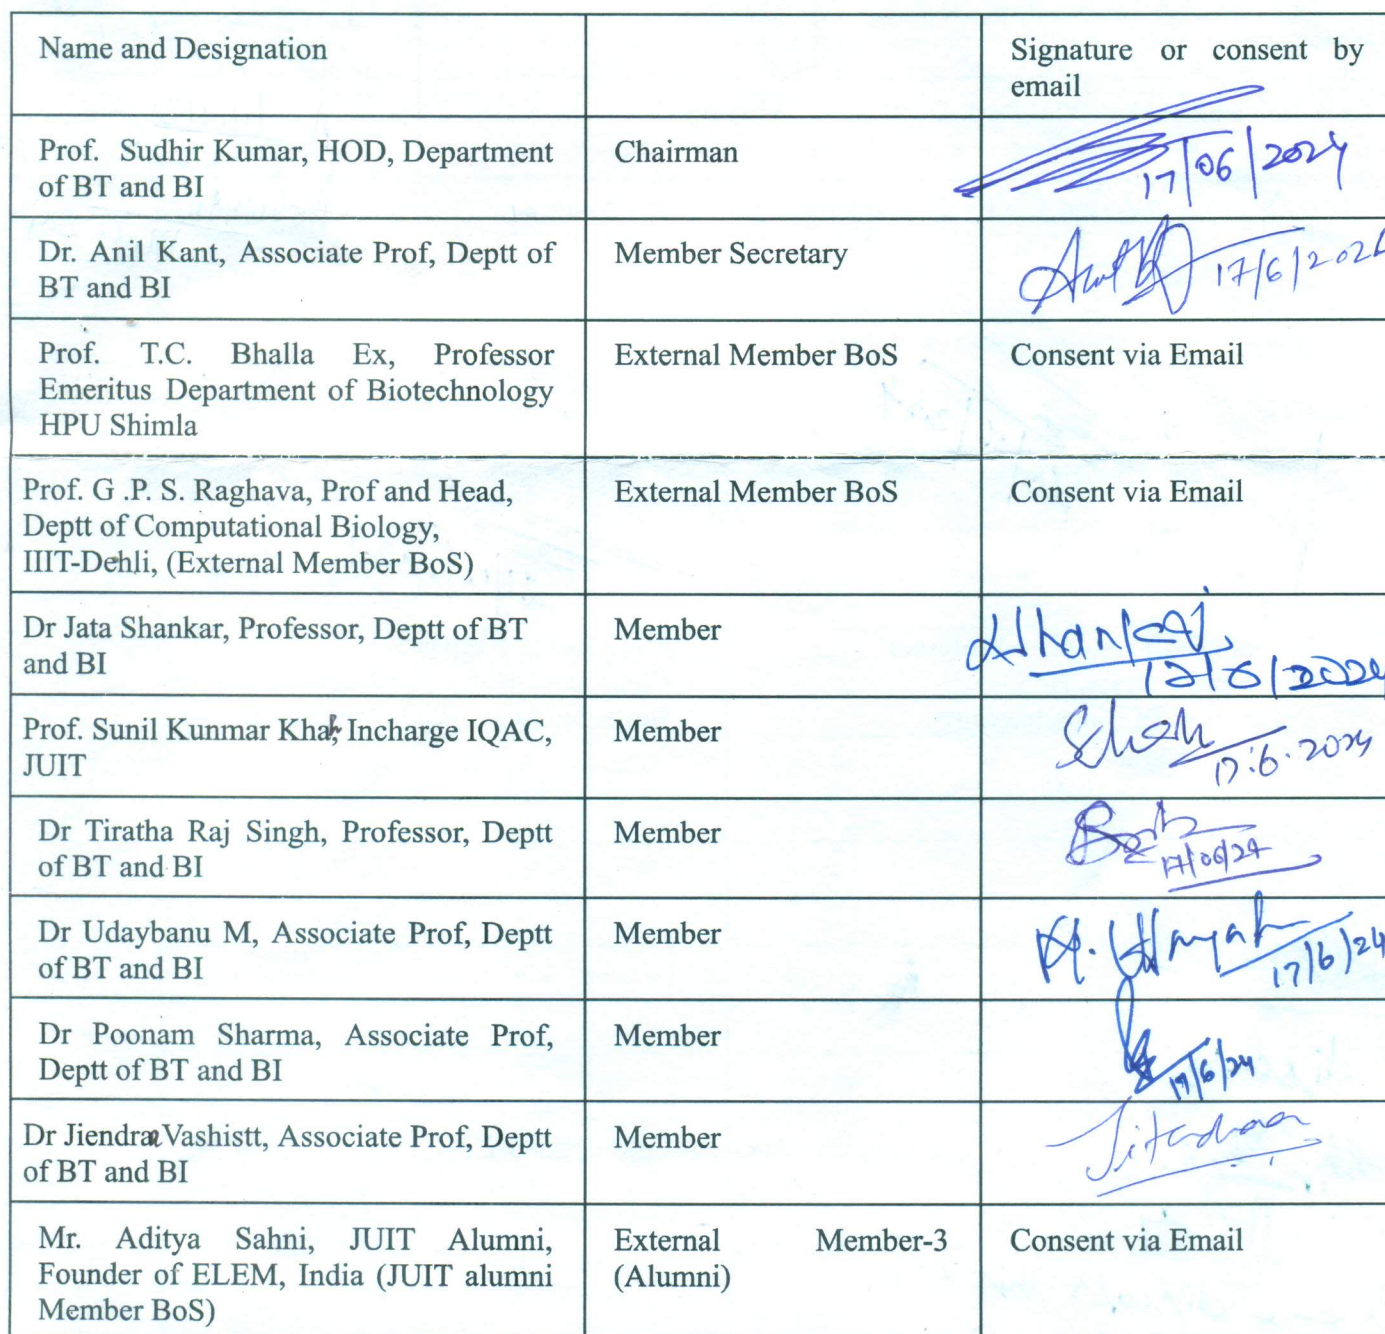 Name and Designation
Signature or consent by
email
Prof. Sudhir Kumar, HOD, Department
of BT and BI
Chairman
17/06/2024
Dr. Anil Kant, Associate Prof, Deptt of
BT and BI
Member Secretary
17/6/202
Prof. T.C. Bhalla Ex, Professor
Emeritus Department of Biotechnology
HPU Shimla
External Member BoS
Consent via Email
Prof. G .P. S. Raghava, Prof and Head,
Deptt of Computational Biology,
IIIT-Dehli, (External Member BoS)
External Member BoS
Consent via Email
Dr Jata Shankar, Professor, Deptt of BT
and BI
Member
Prof. Sunil Kunmar Khah, Incharge IQAC,
JUIT
Member
17.6.2024
Dr Tiratha Raj Singh, Professor, Deptt
of BT and BI
Member
17/06/24
Dr Udaybanu M, Associate Prof, Deptt
of BT and BI
Member
17/6/24
Dr Poonam Sharma, Associate Prof,
Deptt of BT and BI
Member
17/6/24
Dr Jiendra Vashistt, Associate Prof, Deptt
of BT and BI
Member
Jitendraa
Mr. Aditya Sahni, JUIT Alumni,
Founder of ELEM, India (JUIT alumni
Member BoS)
External Member-3
(Alumni)
Consent via Email